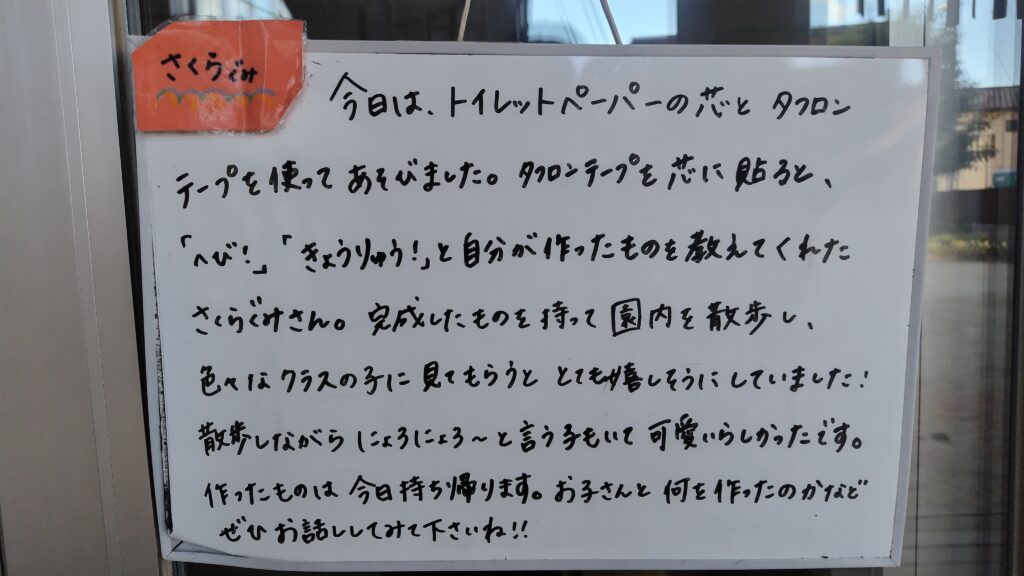 さくらぐみ
今日は、トイレットペーパーの芯と タフロン
テープを使って あそびました。タフロンテープを芯に貼ると、
「へび!」「きょうりゅう!」と自分が作ったものを教えてくれた
さくらぐみさん。完成したものを持って園内を散歩し、
色々なクラスの子に見てもらうと とても嬉しそうにしていました!
散歩しながら にょろにょろ〜と言う子もいて 可愛いらしかったです。
作ったものは 今日持ち帰ります。お子さんと 何を作ったのかなど
ぜひ お話ししてみて下さいね!!